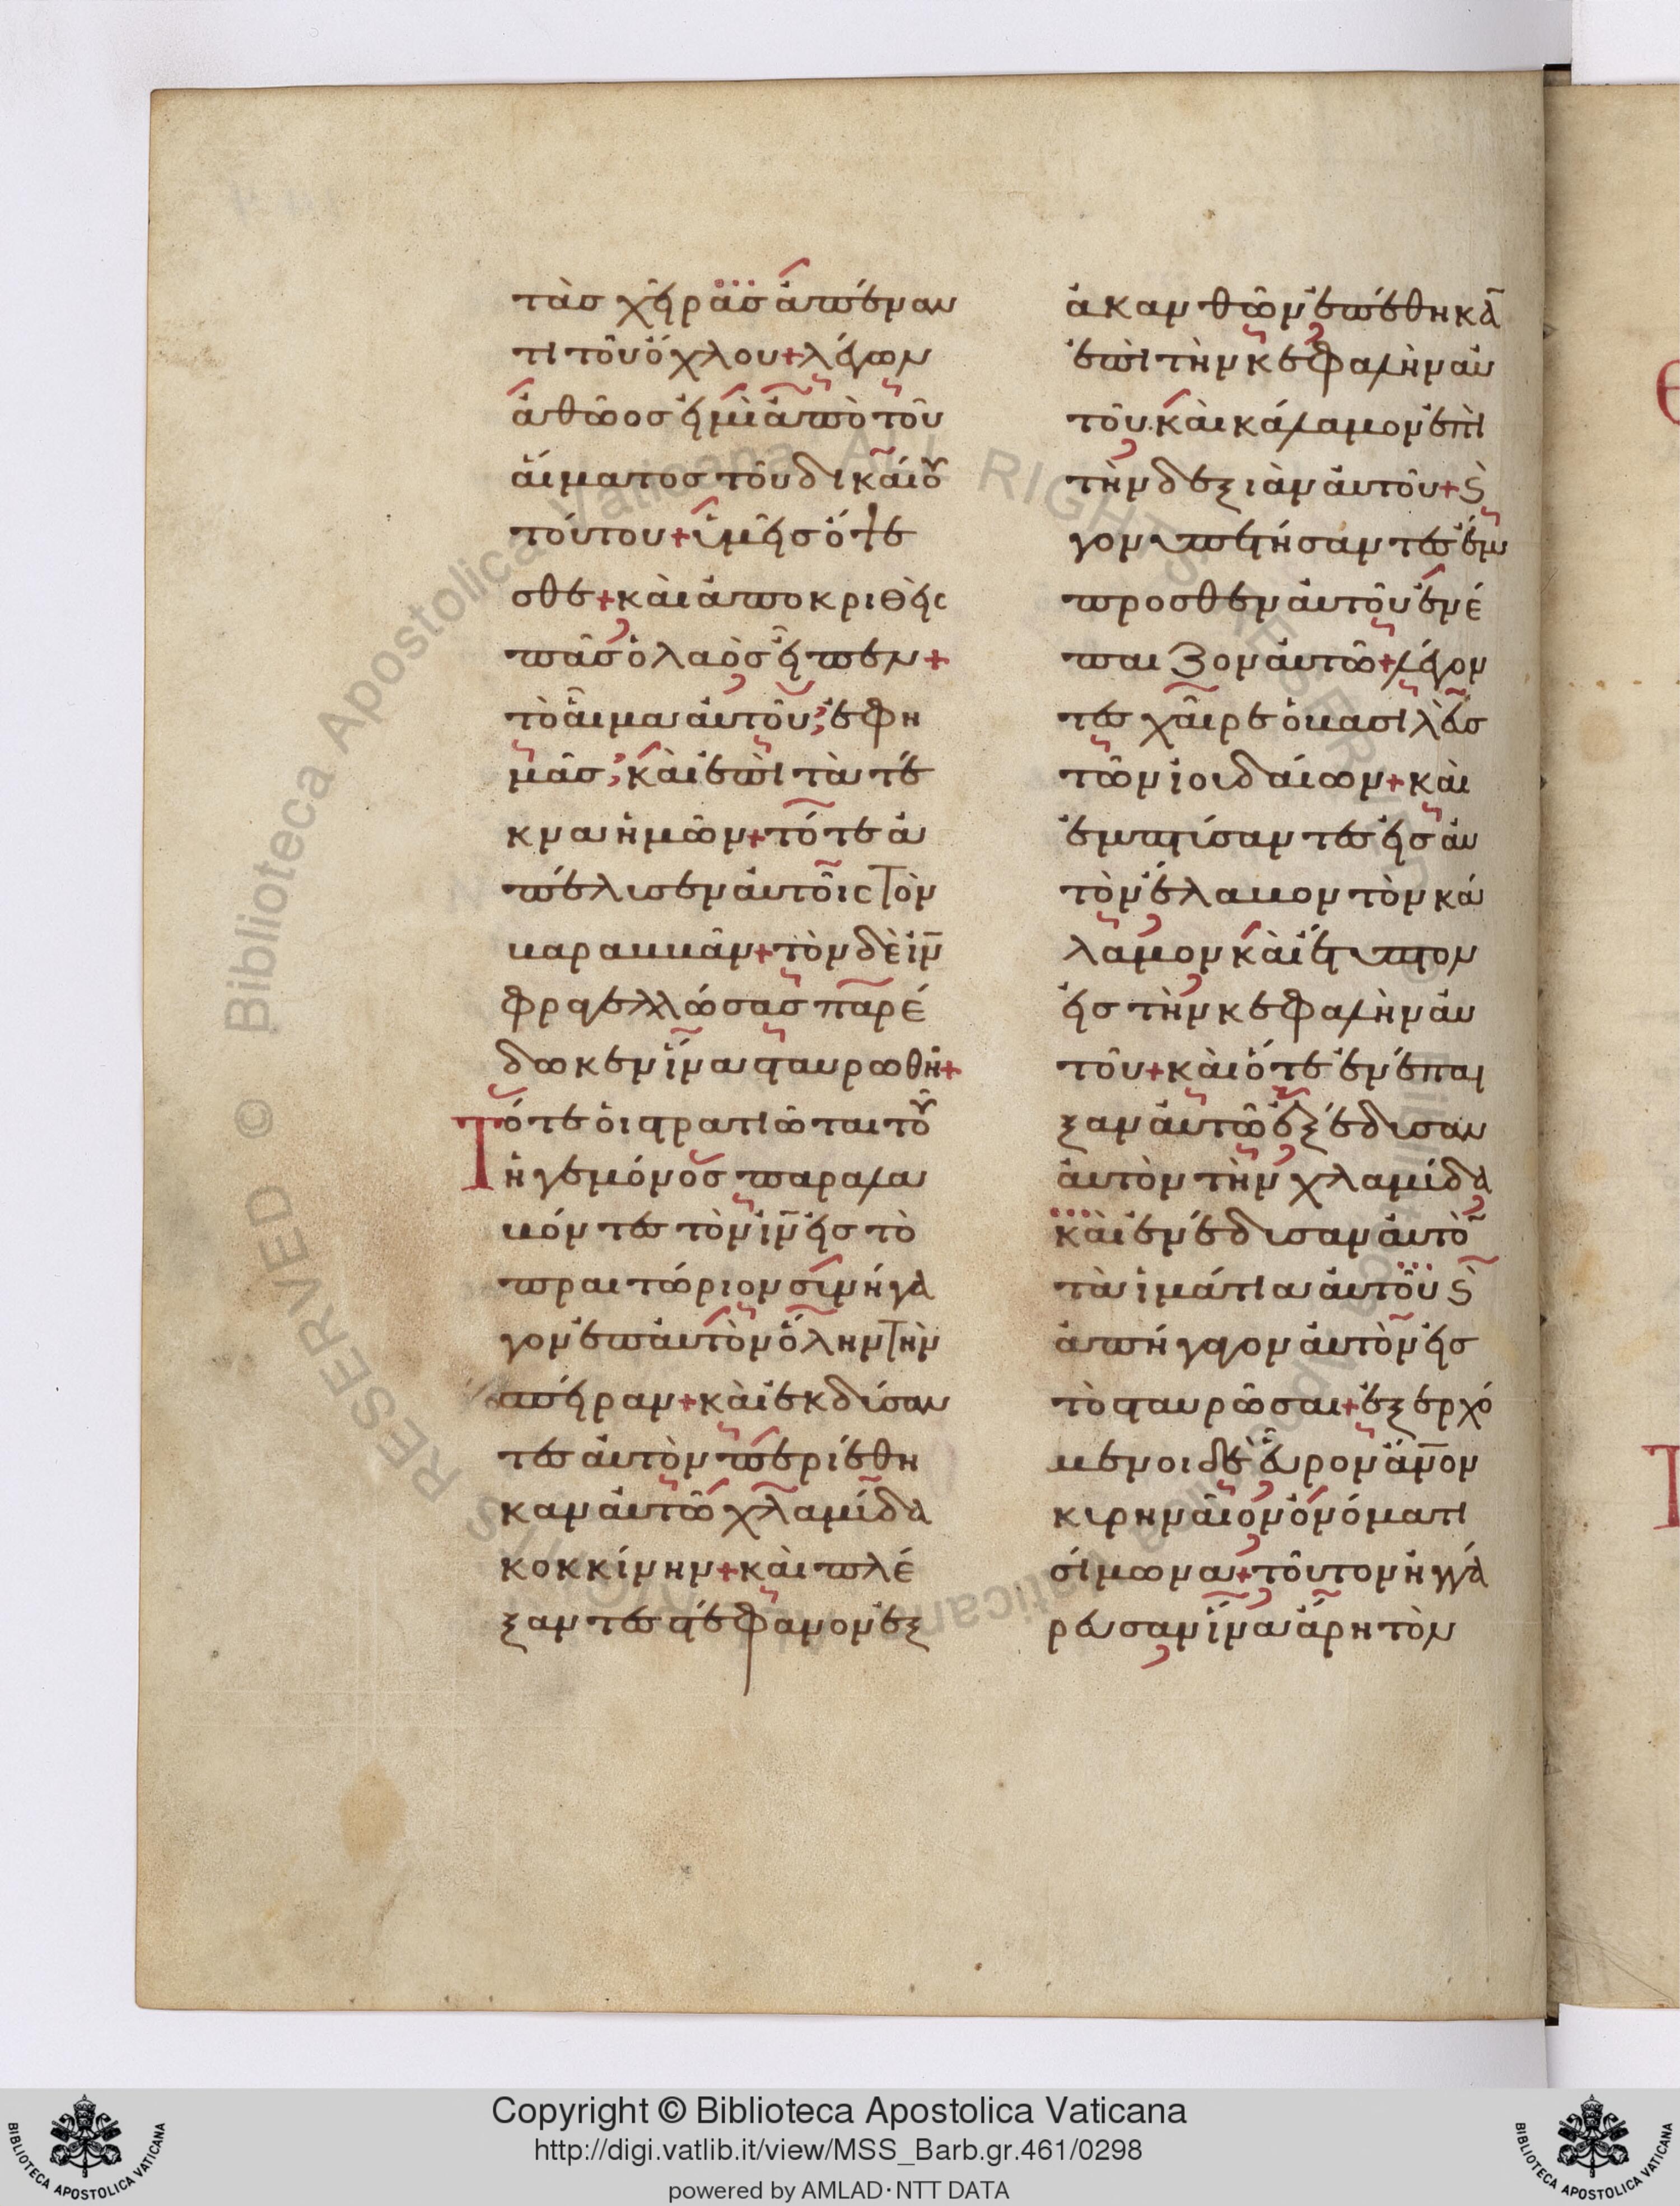 τὰσ χεῖρασ ἀπέναν
τι τοῦ ὄχλου + λέγων
ἀθῶοσ εἰμὶ ἀπὸ τοῦ
αἵματοσ τοῦ δικαίου
τούτου + ὑμεῖσ ὄψε
σθε + καὶ ἀποκριθεὶς
πᾶσ ὁ λαὸσ εἶπεν +
τὸ αἷμα αὐτοῦ; ἐφ η
μᾶσ; καὶ ἐπὶ τὰ τέ
κνα ἡμῶν + τότε ἀ
πέλισεν αὐτοῖς τὸν
βαραββᾶν + τὸν δὲ ἰν̅
φραγελλώσασ παρέ
δωκεν ἵνα σταυρωθῆ +
Τότε οἱ στρατιῶται τοῦ
ἡγεμόνοσ παραλα
βόντεσ τὸν ἰν̅ εἰσ τὸ
πραιτώριον σινήγα
γον ἐπ αὐτὸν ὅλην τὴν
σπείραν + καὶ ἐκδίσαν
τεσ αὐτὸν περιέθη
καν αὐτῶ χλαμίδα
κοκκίνην + καὶ πλέ
ξαντεσ στέφανον ἐξ
ἀκανθῶν ἐπέθηκα̅
ἐπὶ τὴν κεφαλὴν αὐ
τοῦ. καὶ κάλαμον ἐπὶ
τὴν δεξιὰν αὐτοῦ + ϛ̀
γονυπετήσαντεσ ἔμ
προσθεν αὐτοῦ ἐνέ
παιζον αὐτῶ + λέγον
τεσ χαῖρε ὁ βασιλεὺσ
τῶν ἰουδαίων + καὶ
ἐμπτίσαντεσ εἰσ αὐ
τὸν ἔλαβον τὸν κά
λαμον καὶ ἔτυπτον
εἰσ τὴν κεφαλὴν αὐ
τοῦ + καὶ ὅτε ἐνέπαι
ξαν αὐτῶ ἐξέδισαν
αὐτὸν τὴν χλαμίδα
καὶ ἐνέδισαν αὐτὸ̅
τὰ ἱμάτια αὐτοῦ ϛ̀
ἀπήγαγον αὐτὸν εἰσ
τὸ σταυρῶσαι + ἐξερχό
μενοι δὲ εὗρον ἄν̅ον
κιρηναῖον ὀνόματι
σίμωνα + τοῦτον ἠγγά
ρευσαν ἵνα ἄρη τὸν
Copyright © Biblioteca Apostolica Vaticana
http://digi.vatlib.it/view/MSS_Barb.gr.461/0298
powered by AMLAD·NTT DATA